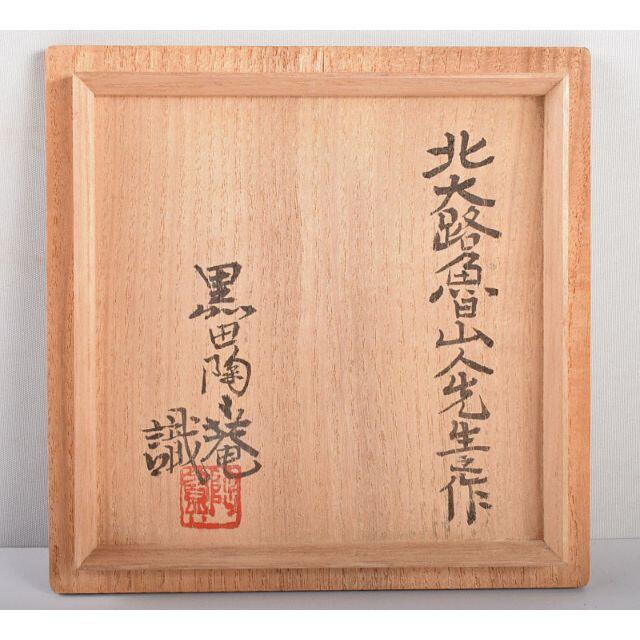 北大路魯山人先生之作
黒田陶々菴
識